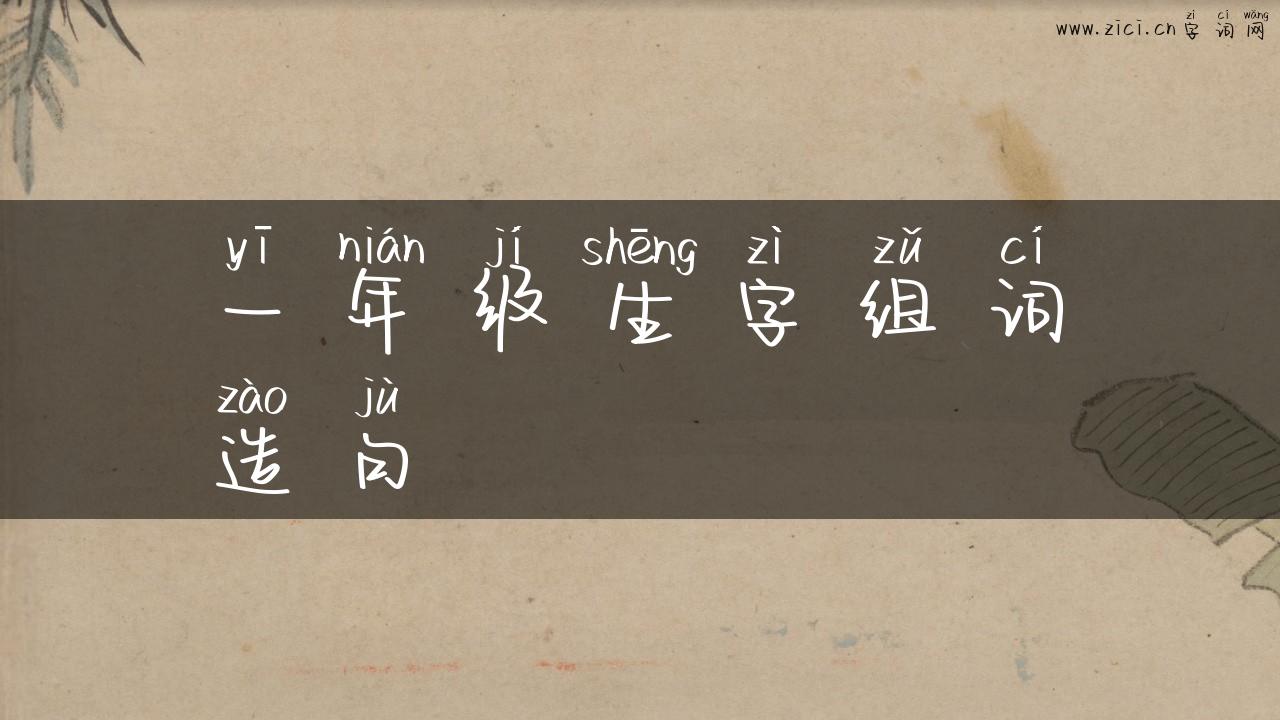 zì cí wǎng
www.zici.cn字词网
yī nián jí shēng zì zǔ cí
一年级生字组词
zào jù
造句